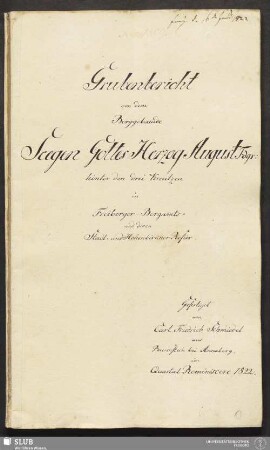 Grubenbericht
von dem
Berggebäude
Seegen Gottes Herzog August Fdgr.
hinter den drei Kreutzen
in
Freiberger Bergamts-
und deren
Stadt- und Hohenbirkner Refier
Gefertiget
von
Carl Friedrich Schmiedel
aus
bei Annaberg,
im
Quartal Reminiscere 1822.
SLUB